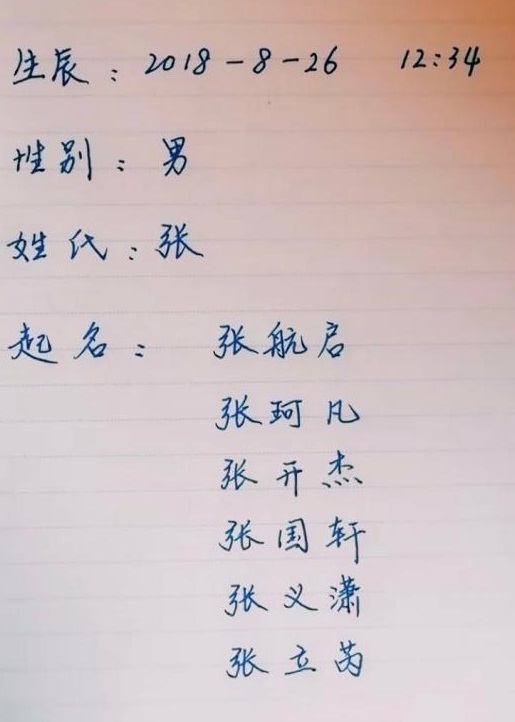 生辰：2018-8-26 12:34
性别：男
姓氏：张
起名：张航启
张珂凡
张开杰
张国轩
张义潇
张立芮